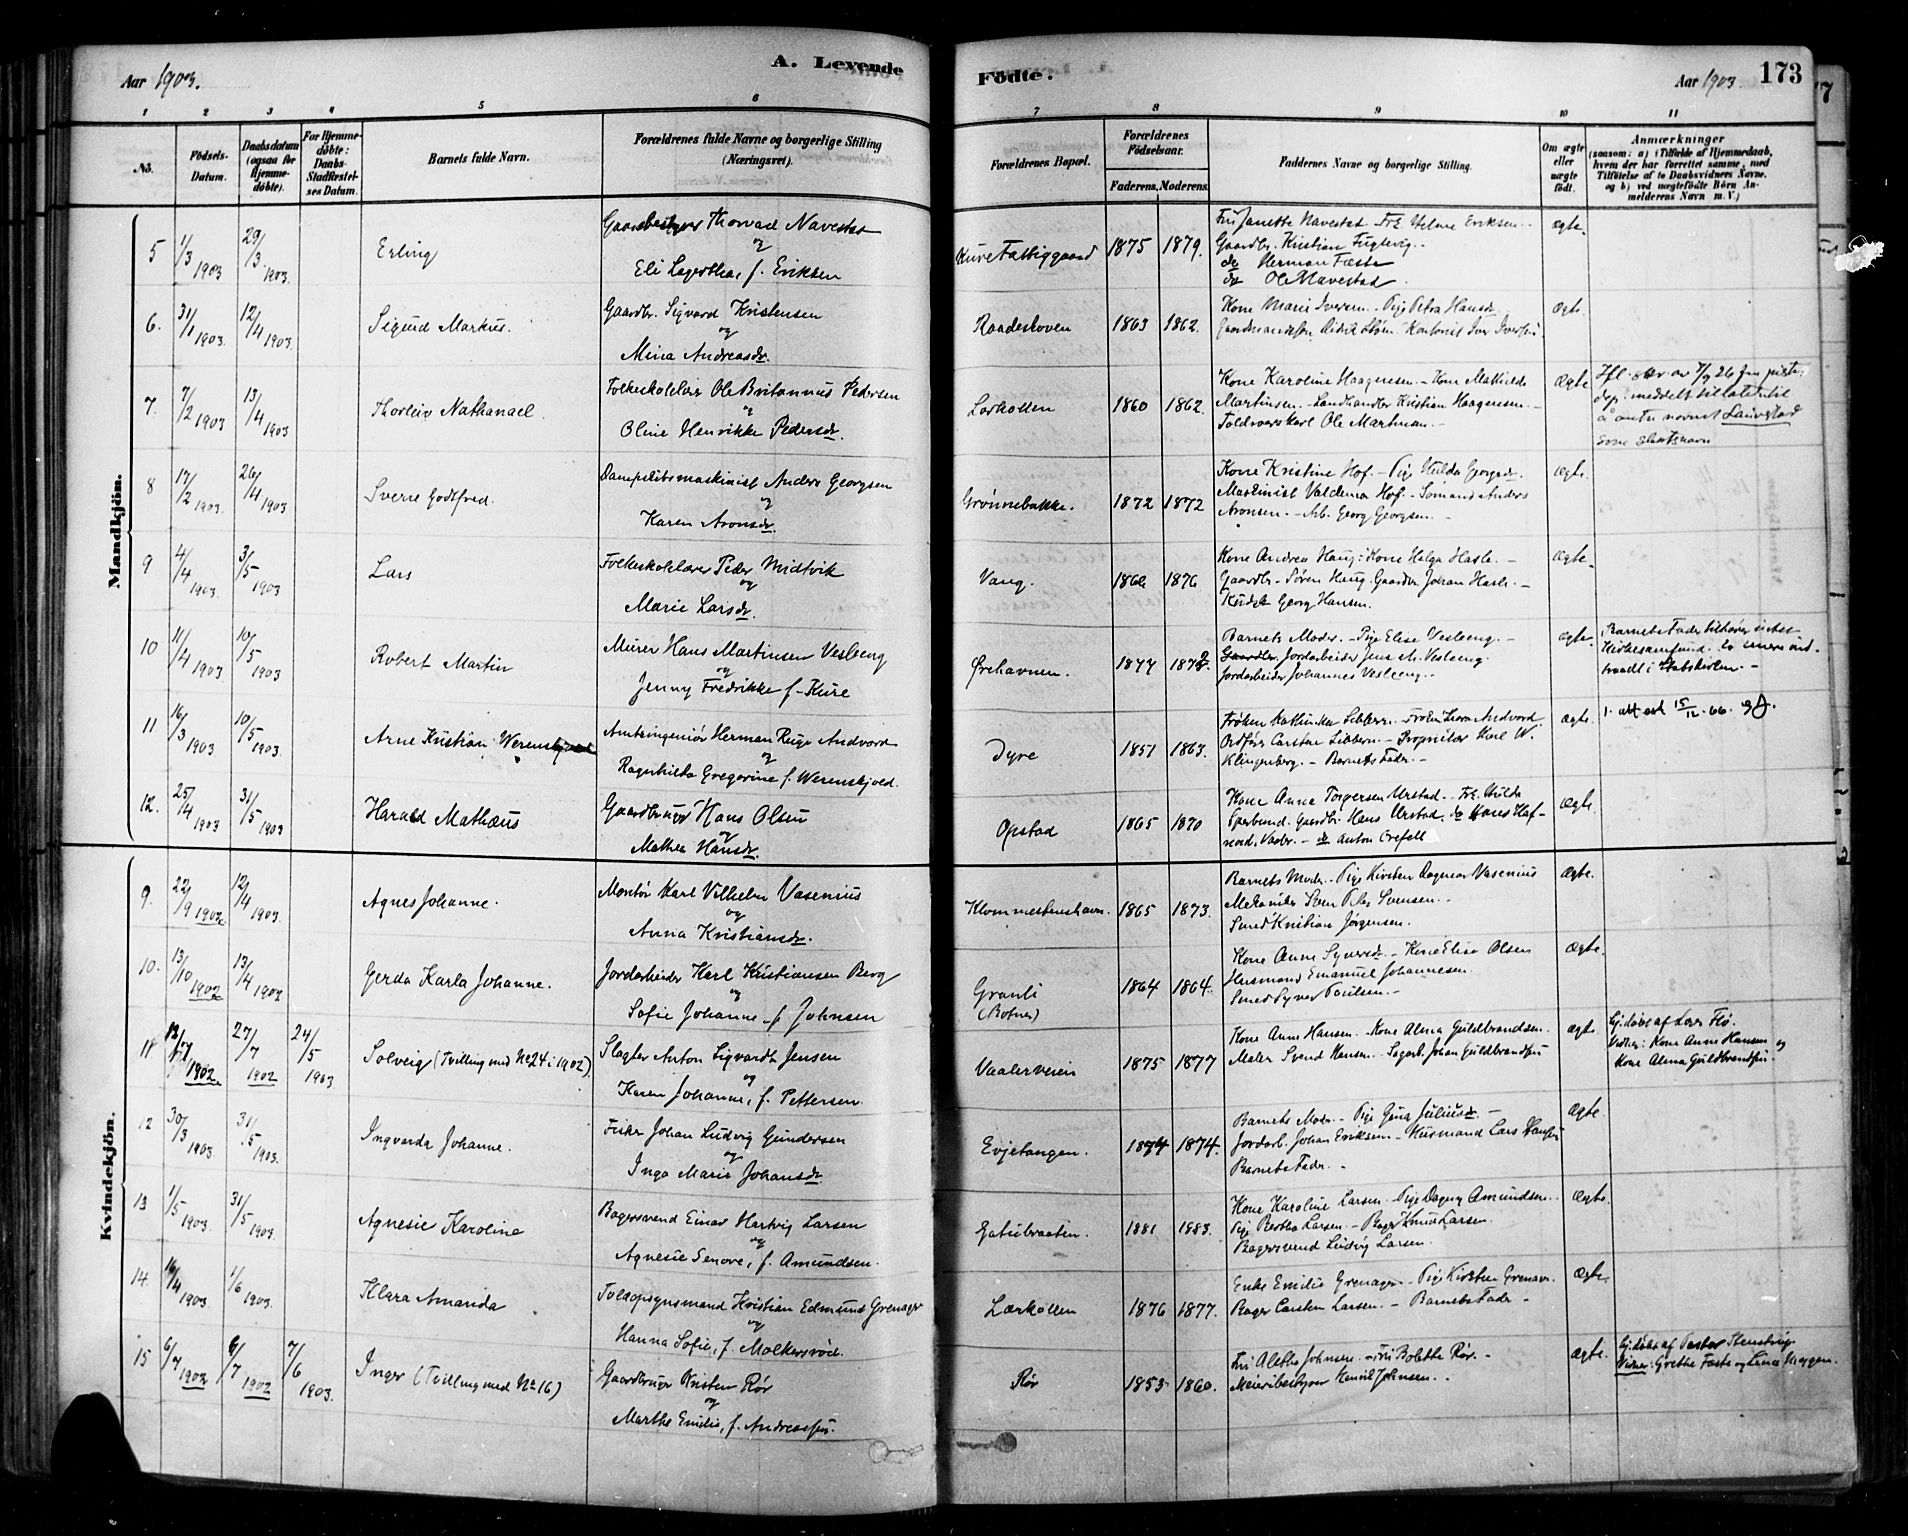 Aar 1903.
A. Levende
Födte.
Aar 1903.
173
1 2 3 4 5 6 7 8 9 10 11
No.
Födsels-
Datum.
Daabsdatum
(ogsaa for
Hjemme-
döbte).
For Hjemme-
döbte:
Daabs-
Stadfæstel-
ses Datum.
Barnets fulde Navn.
Forældrenes fulde Navne og borgerlige Stilling
(Næringsvei).
Forældrenes Bopæl.
Forældrenes
Födselsaar.
Faderens. Moderens.
Faddernes Navne og borgerlige Stilling.
Om ægte
eller
uægte
födt.
Anmærkninger
(saasom: a) i Tilfælde af Hjemmedaab,
hvem der har forrettet samme, med
Tilföielse af to Daabsvidners Navne,
og b) ved uægtefödte Börn An-
melderens Navn m. V.)
Mandkjön.
5 1/3 1903 29/3 1903. Erling
Gaardbestyrer Thorvald Navestad
og
Eli Lagertha, f. Eriksen
Kure Fattiggaard 1875 1879.
Fru Janette Navestad - Frk. Helene Eriksen -
Gaardbr. Kristian Fuglevig.
do Herman Fæste
do Ole Navestad.
ægte.
6. 31/1 1903. 12/4 1903. Sigurd Markus.
Gaardbr. Sigvard Kristensen
og
Mina Andreasdr.
Raadeskoven 1863 1862.
Kone Marie Iversen - Pige Petra Hansdr
Ægte.
7. 7/2 1903 13/4 1903. Thorleiv Nathanael.
Folkeskolelærer Ole Britannus Pedersen
og
Oline Henrikke Pedersdr.
Larkollen 1860 1862.
Kone Karoline Haagensen - Kone Mathilde
Martinsen - Landhandler Kristian Haagensen -
Toldroerskarl Ole Martinsen -
Ægte
Ifl. skr av 7/9 26 fra justis
dep. meddelt tillatelse til
å anta navnet Lauvstad
som slektsnavn
8 17/2 1903. 26/4 1903 Sverre Godtfred.
Dampskibsmaskinist Anders Georgsen
og
Karen Aronsdr.
Grønnebakke. 1872 1872
Kone Kristine Hof. - Pige Hulda Georgsdr.
Maskinist Valdemar Hof. - Sømand Anders
Aronsen. - Arb. Georg Georgsen. -
Ægte.
9 4/4 1903 3/5 1903 Lars
Folkeskolelærer Peder Midtvik
og
Marie Larsdr.
Vang. 1866 1876
Kone Andrea Haug: Kone Helga Hasle. -
Gaardbr. Søren Haug. Gaardbr. Johan Hasle. -
Kudsk Georg Hansen.
Ægte.
10 11/4 1903 10/5 1903 Robert Martin
Murer Hans Martinsen Vesleeng
og
Jenny Fredrikke f. Kure
Ørehavnen. 1877 1872.
Barnets Moder. - Pige Elise Vesleeng. -
Gaardbr. Jordarbeider Jens M. Vesleeng.
Jordarbeider Johannes Vesleeng. -
ægte.
Barnets Fader tilhører intet
Kirkesamfund.
traadt i Statskirken. -
11 16/3 1903 10/5 1903. Arne Kristian Werenskjold
Amtsingeniør Herman Ruge Andvord
og
Ragnhilda Gregorine f. Werenskjold.
Dyre 1851 1863.
Frøken Kathinka Sibbern. - Frøken Thora Andvord
Ordfører Carsten Sibbern. - Proprietær Karl W.
Klingenberg. - Barnets Fader. -
Ægte.
1. att est 15/12. 66.
12. 25/4 1903 31/5 1903 Harald Mathæus
Gaardbruger Hans Olsen
og
Mathea Hansdr.
Opstad 1865 1870
Kone Anna Torgersen Urstad. - Frk. Hulda
Sperbund. Gaardbr. Hans Urstad. do Hans Haf-
- do Anton Orefell
Ægte.
Kvindekjön.
9. 22/9 1902 12/4 1903. Agnes Johanne.
Montør Karl Vilhelm Vasenius
og
Anna Kristiansdr.
Klommestenshavn. 1865 1873.
Barnets Moder. - Pige Kirsten Dagmar Vasenius
Mekaniker Sven Olaf Svensen. -
Smed Kristian Jørgensen.
Ægte.
10. 13/10 1902 13/4 1903 Gerda Karla Johanne.
Jordarbeider Karl Kristiansen Berg
og
Sofie Johanne f. Johnsen
Granli
(Botner) 1864 1864.
Kone Anne Syversdr. - Kone Elise Olsen
Husmand Emanuel Johannesen.
Smed Syver Paulsen. -
Ægte.
11 12/7 1902. 27/7 1902 24/5 1903 Solveig (Tvilling med No 24 i 1902)
Slagter Anton Sigvardt Jensen
og
Karen Johanne, f. Pettersen.
Vaalerveien 1875 1877
Kone Anne Hansen. - Kone Alma Guldbrandsen.
Maler Svend Hansen. - Sagarb. Johan Guldbrandsen
ægte.
Hj.døbt af Lars Flø.
Vidner: Kone Anne Hansen og
Kone Alma Guldbrandsen.
12 30/3 1903 31/5 1903. Ingvarda Johanne.
Fisker Johan Ludvig Gundersen
og
Inga Marie Johansdr
Evjetangen. 1874 1874.
Barnets Moder - Pige Gina Juliusdr. -
Jordarb. Johan Eriksen - Husmand Lars Hansen
Barnets Fader. -
Ægte.
13 1/5 1903. 31/5 1903. Agnesie Karoline
Bagersvend Einar Hartvig Larsen
og
Agnesie Senove, f. Amundsen.
1881 1883.
Kone Karoline Larsen. - Pige Dagny Amundsen.
Pige Bertha Larsen. - Bager Knut Larsen.
Bagersvend Ludvig Larsen.
Ægte.
14 19/4 1903. 1/6 1903. Klara Amanda
Toldopsynsmand Kristian Edmund Grenager
og
Hanna Sofie, f. Molkersrød.
Larkollen 1876 1877.
Enke Emilie Grenager - Pige Kirsten Grenager.
Bager Carsten Larsen. - Barnets Fader -
Ægte.
15 6/7 1902 6/7 1902 7/6 1903. Inger (Tvilling med No 16)
Gaardbruger Kristen Rør
og
Marthe Emilie, f. Andreassen.
Rør 1853 1860.
Fru Alethe Johnsen. - Fru Bolette Rør. -
Meieribestyrer Henrik Johnsen. -
ægte.
Hj.døbt af Pastor Stenstrup
Vidner: Grethe Fæste og Lina